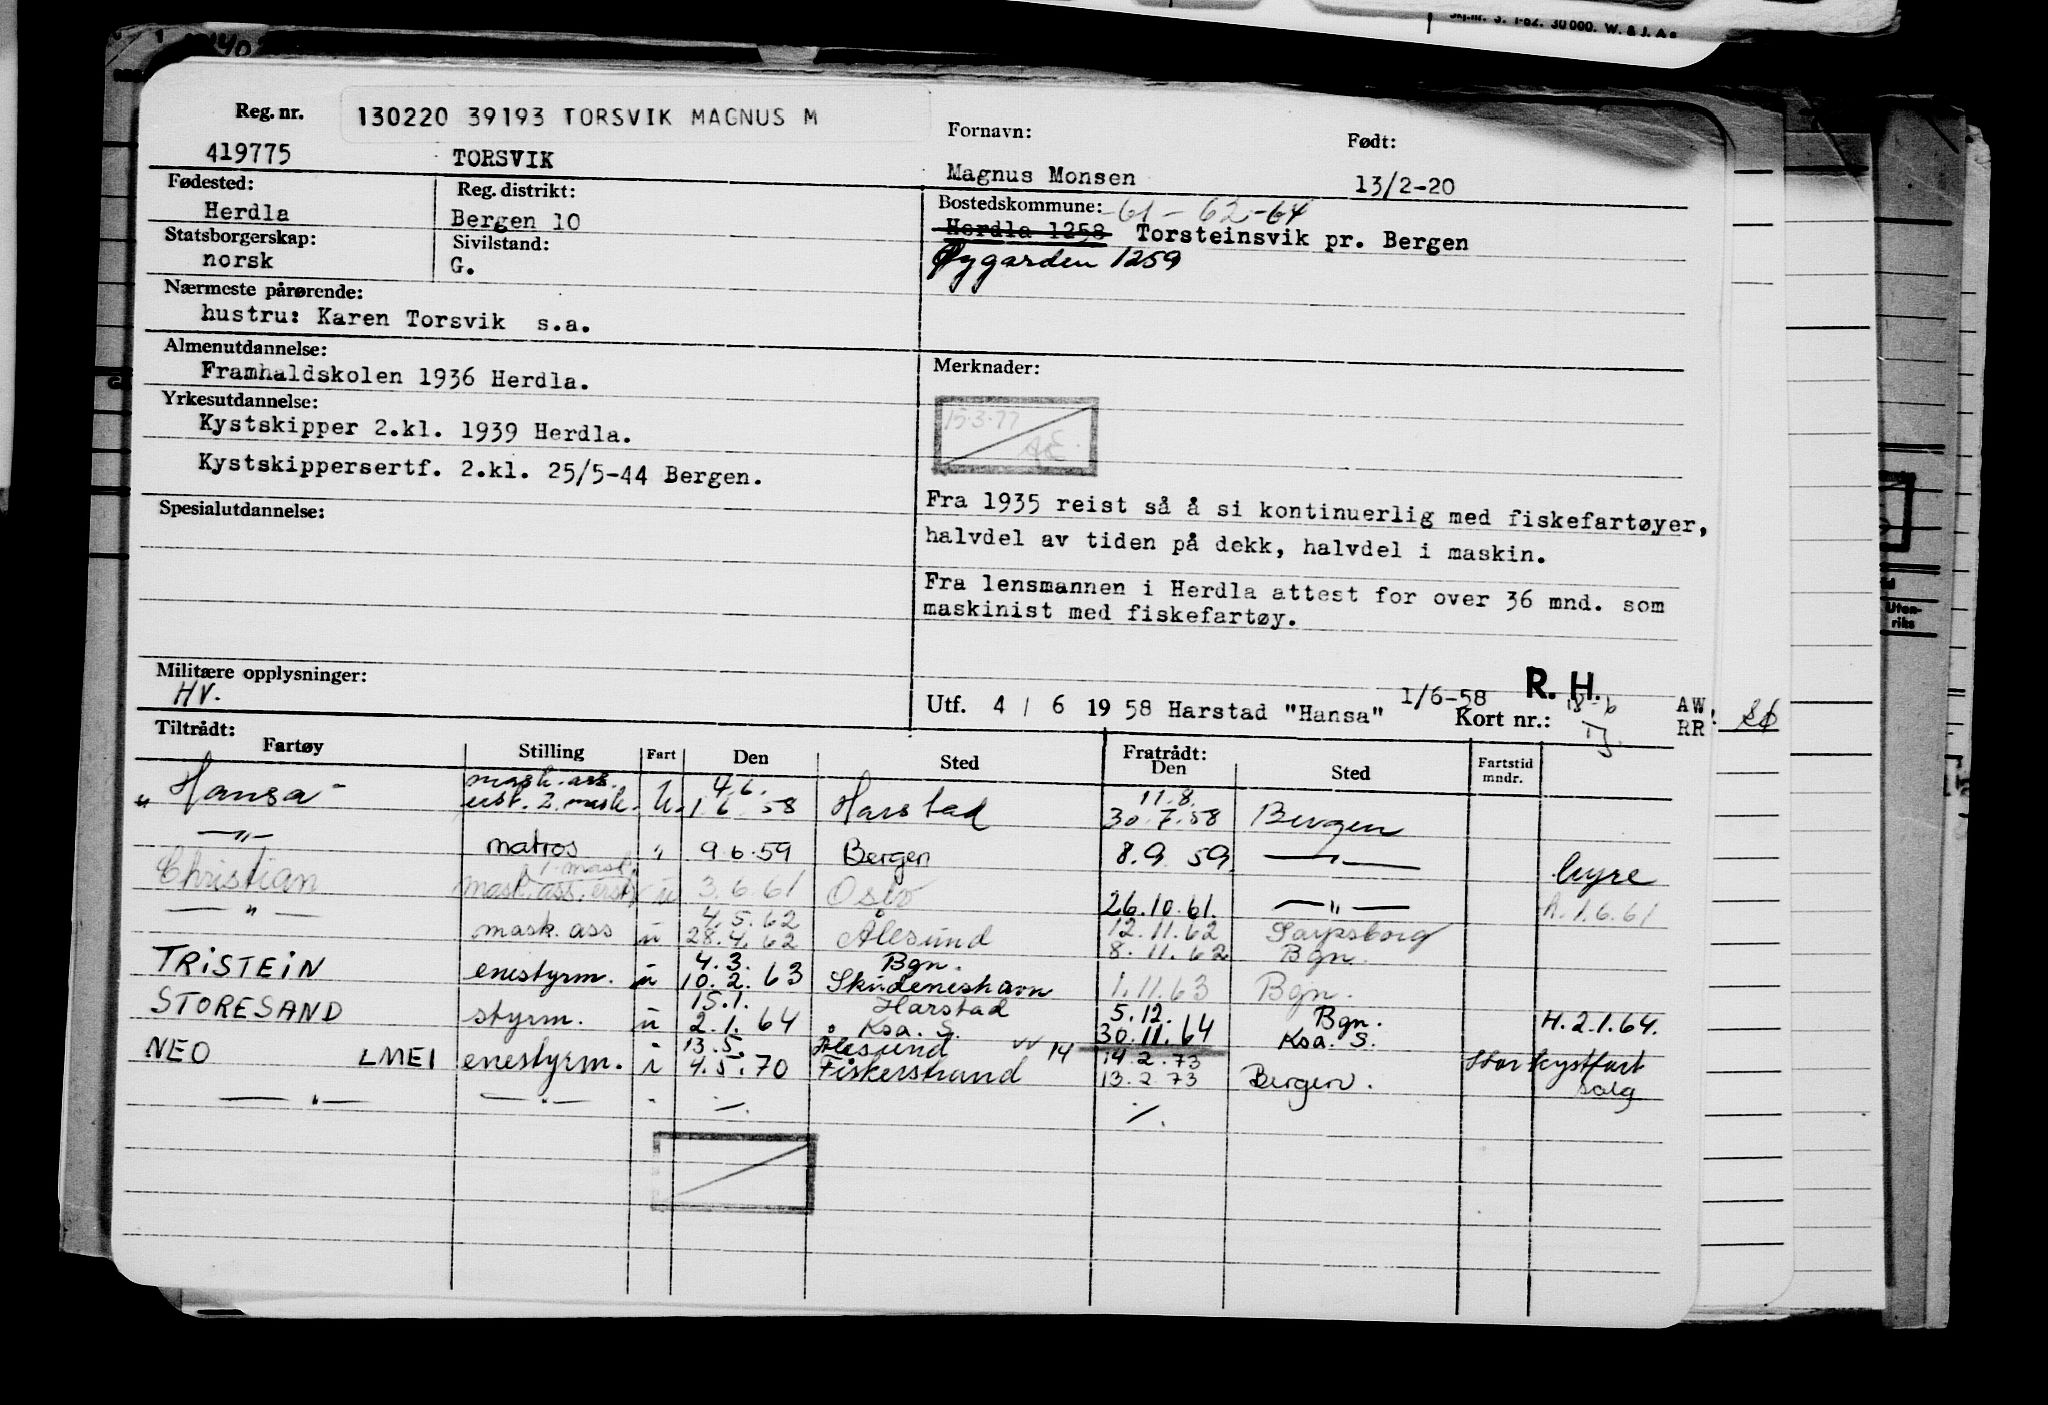 Skj.nr. 3. 1-62. 30 000. W. & J. A s
Reg. nr.
130220 39193 TORSVIK MAGNUS M
Fornavn:
Født:
419775
TORSVIK
Magnus Monsen
13/2-20
Fødested:
Reg. distrikt:
Bostedskommune: -61-62-64
Herdla
Bergen 10
Herdla 1258 Torsteinsvik pr. Bergen
Statsborgerskap:
Sivilstand:
Øygarden 1259
norsk
G.
Nærmeste pårørende:
hustru: Karen Torsvik s.a.
Almenutdannelse:
Framhaldskolen 1936 Herdla.
Merknader:
Yrkesutdannelse:
15.3.77
Kystskipper 2.kl. 1939 Herdla.
Kystskippersertf. 2.kl. 25/5-44 Bergen.
Spesialutdannelse:
Fra 1935 reist så å si kontinuerlig med fiskefartøyer,
halvdel av tiden på dekk, halvdel i maskin.
Fra lensmannen i Herdla attest for over 36 mnd. som
maskinist med fiskefartøy.
Militære opplysninger:
HV.
Utf. 4 / 6 19 58 Harstad "Hansa" 1/6-58 R. H.
Kort nr.: 18-6
AW
RR
Uten-
riks
Tiltrådt:
Fartøy Stilling Fart Den Sted Fratrådt: Den Sted Fartstid mndr.
mask. ass. 4.6. 11.8.
" Hansa - erst. 2. mask. U. 1.6.58 Harstad 30.7.58 Bergen
—"— matros " 9.6.59 Bergen 8.9.59 —"— hyre
1. mask.
Christian mask. ass. erst. u 3.6.61 Oslo 26.10.61. —"— h. 1.6.61
4.5.62 12.11.62 Sarpsborg
—"— mask. ass u 28.4.62 Ålesund 8.11.62 Bgn.
4.3. Bgn.
TRISTEIN enestyrm. u 10.2.63 Skudeneshavn 1.11.63 Bgn.
15.1. Harstad 5.12. Bgn.
STORESAND styrm. u 2.1.64 Ksa. S. 30.11.64 Ksa. S. H. 2.1.64.
13.5. Ålesund 14 14.2.73
NEO LMEI enestyrm. i 4.5.70 Fiskerstrand 13.2.73 Bergen. Stor kystfart
salg
—"— —"— " -/. -/.